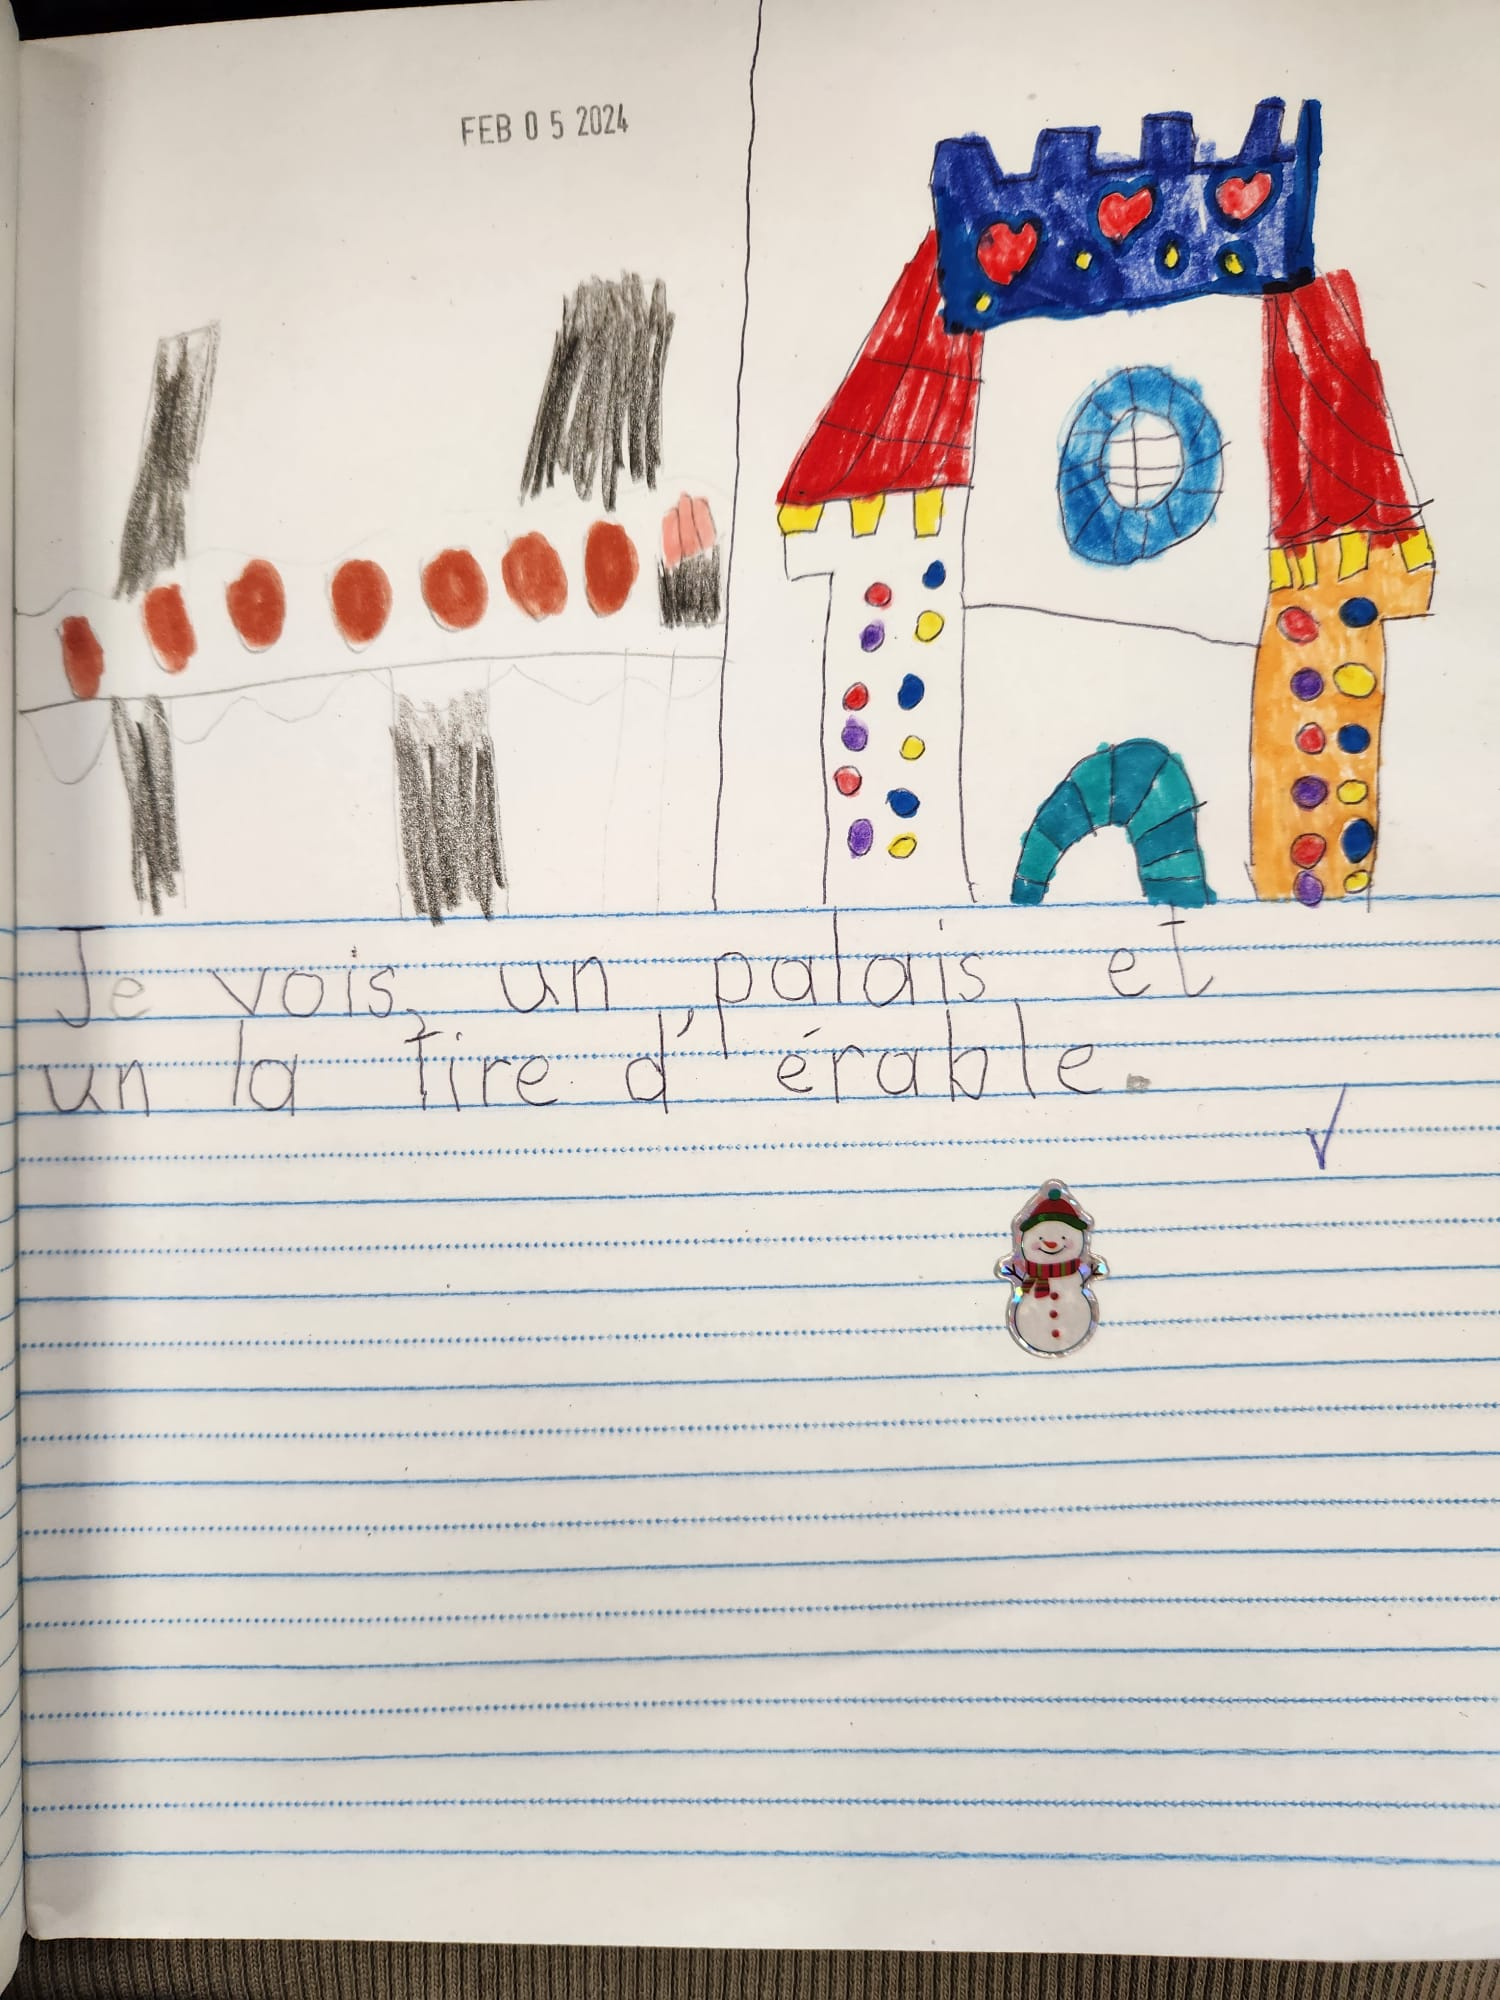 FEB 05 2024
Je vois, un palais et
un la tire d'érable.